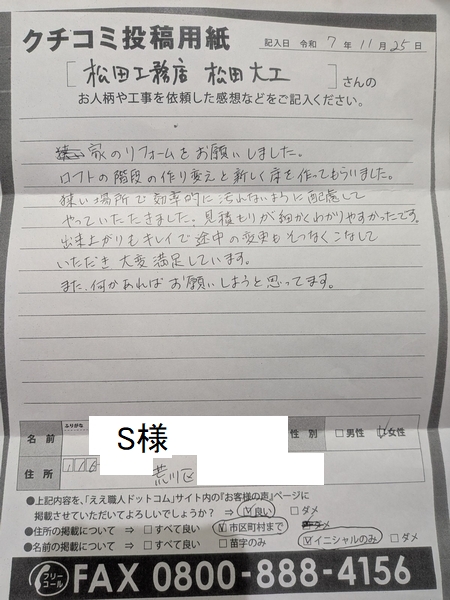 クチコミ投稿用紙
記入日 令和 7 年 11 月 25 日
[松田工務店 松田大工]さんの
お人柄や工事を依頼した感想などをご記入ください。
家のリフォームをお願いしました。
ロフトの階段の作り変えと新しく床を作ってもらいました。
狭い場所で効率的に汚れないように配慮して
やっていただきました。見積もりが細かくわかりやすかったです。
出来上がりもキレイで途中の変更もそつなくこなして
いただき大変満足しています。
また、何かあればお願いしようと思ってます。
ふりがな
名前 S様 性別 □男性 ☑女性
住所 116 荒川区
●上記内容を、「ええ職人ドットコム」サイト内の「お客様の声」ページに
掲載させていただいてよろしいでしょうか? ⇒ ☑良い □ダメ
●住所の掲載について ⇒ □すべて良い ☑市区町村まで
●名前の掲載について ⇒ □すべて良い □苗字のみ ☑イニシャルのみ □ダメ
フリーコール FAX 0800-888-4156